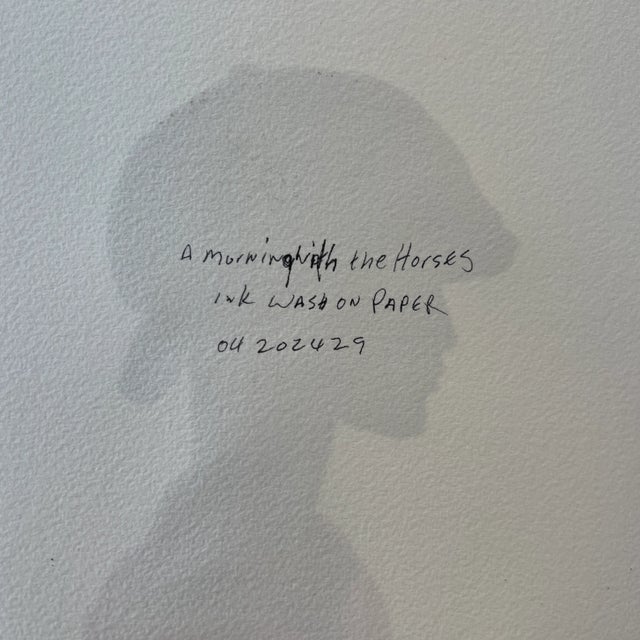 A Morning with the Horses
INK WASH ON PAPER
04 202429